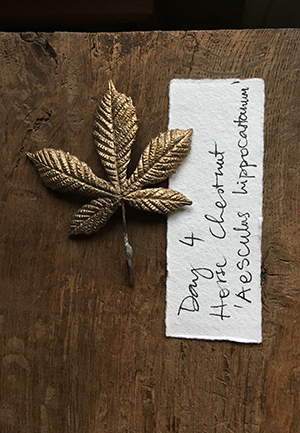 Day 4
Horse Chestnut
'Aesculus hippocastanum'